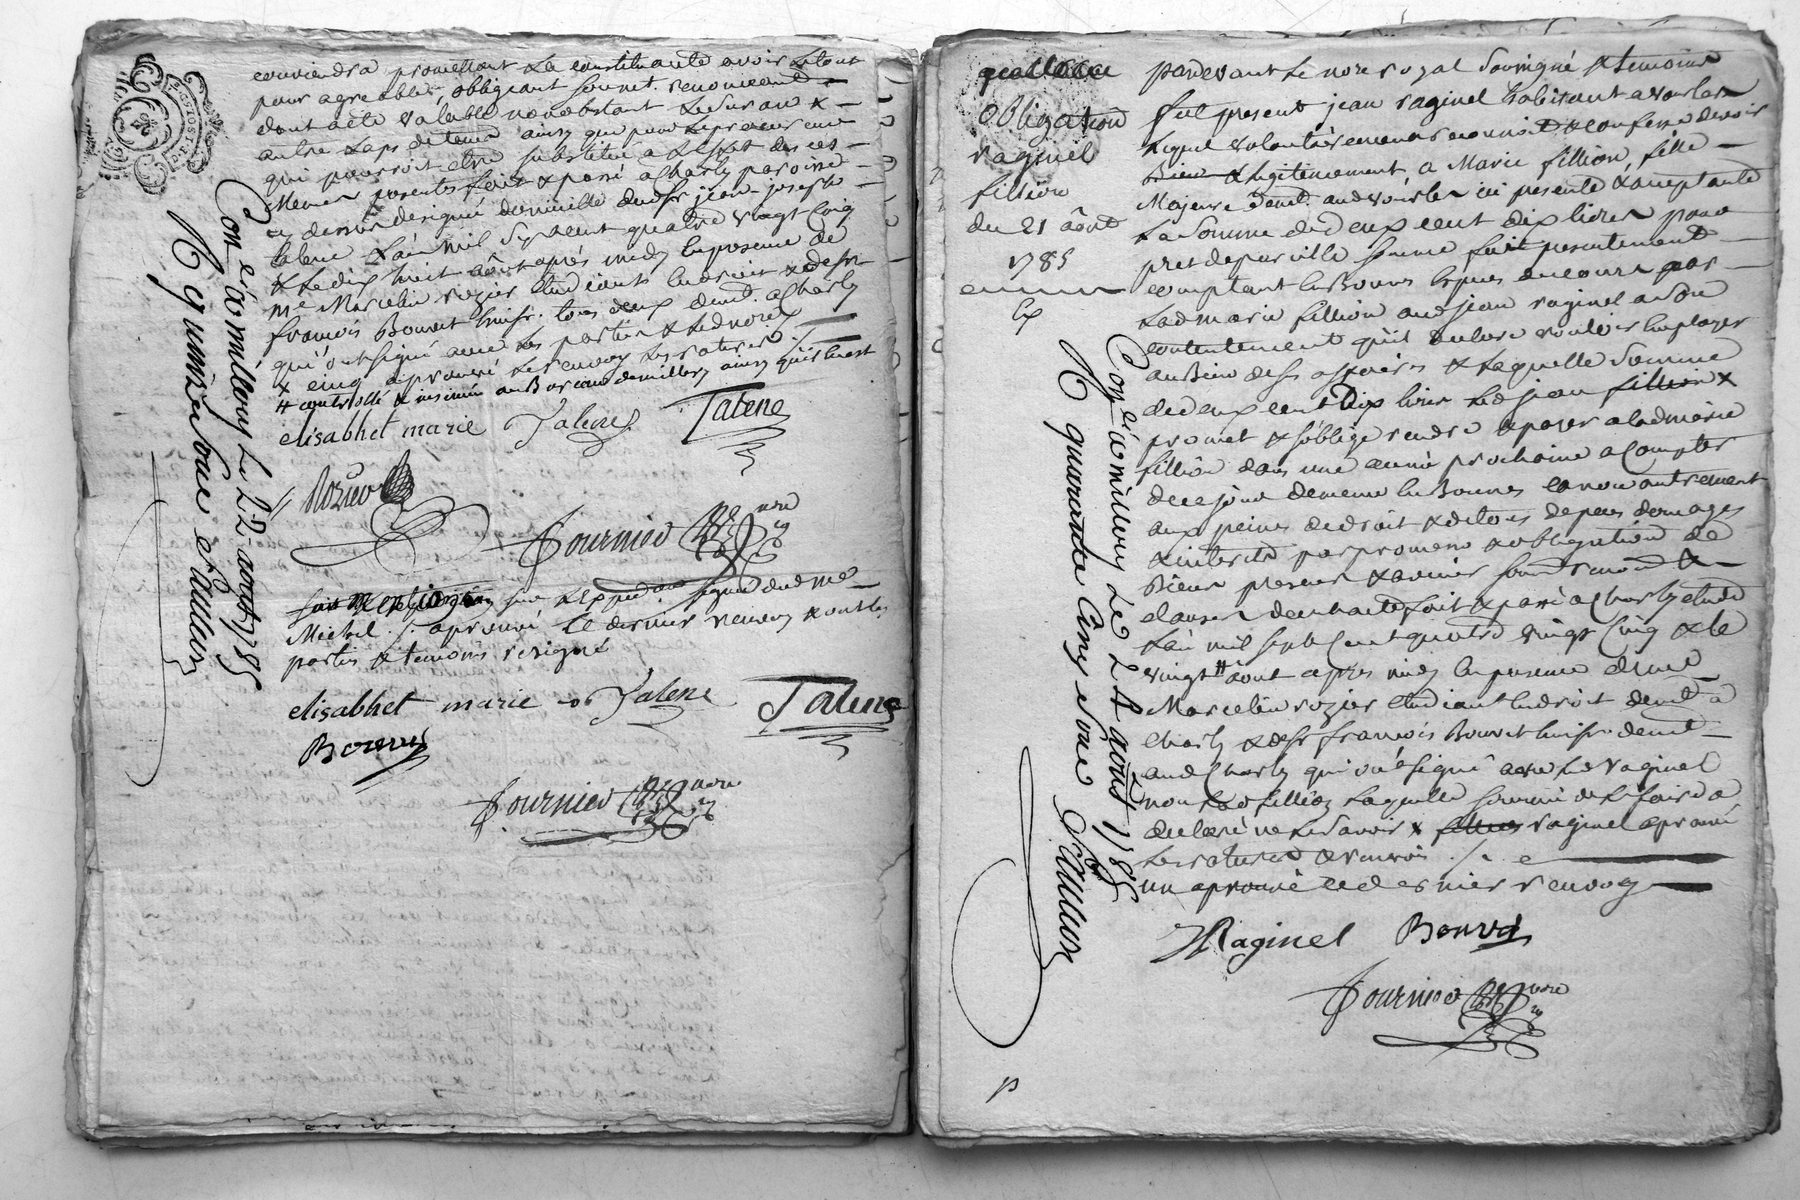 conviendra promettant La constituante avoir Letout
pour agreable obligeant soumet. renonceant
dont acte valable nonobstant Lesuran &
autre Laps detems ainsy que
qui pourroit etre substitué a Leffet des ces
Memes presentes fait & passé a Charly paroisse
cy dessus designé domicille dudsr jean joseph
talene L'an mil sept cent quatre vingt cinq
& Le dix huit août après midy En presence de
me Marcelin rozier Etudiant En droit & desr
francois Bouvet huissr. tous deux demt. a Charly
qui ont signé avec Les parties & Led nore
x cinq aprouvé Les renvoy Les ratures
# controllé & insinué au Bureau demillery ainsy quil Est
elisabhet marie Talene Talene
Rozier
fournier nore
fait mention sur Lexpedon signé dud me
Michel ./. aprouvé Le dernier renvoy & ont Les
parties & temoins resigné
elisabhet marie Talene Talene
Bouvet
fournier nore
Con. é à millery Le 22 aout 1785
R quinze sous
Obligation
raginel
fillion
du 21 août
1785
pardevant Le nore royal soussigné & temoins
fut present jean raginel habitant a vourles
Lequel volontairement reconnoit & confesse devoir
Bien & Legitimement a Marie fillion, fille
Majeure demt. aud vourles ici presente & acceptante
La somme de deux cent dix livres pour
pret depareille somme fait presentement
comptant En Bonnes Especes du cours par
Lad marie fillion aud jean raginel a son
contentement qu'il declare vouloir Employer
au Bien de ses affaires & Laquelle somme
de deux cent Dix livres Led jean fillion x
promet & s'oblige rendre & payer a lad marie
fillion dans une année prochaine a Compter
dece jour demême En Bonnes Especes non autrement
aux peines dedroit & detous depens domages
& interets par promesse & obligation de
Biens presens & avenir soumt renonct &
clauses dont acte fait & passé a Charly etude
L'an mil sept Cent quatre vingt Cinq & Le
vingt # août apres midy En presence de me
Marcelin rozier Etudiant En droit demt à
Charly & desr francois Bouvet huissr. demt
aud Charly qui ont signé avec Led raginel
non Lad fillion Laquelle sommé de Le faire a
declaré ne Le savoir x fillion raginel aprouvé
Les ratures & renvoi ./.
# un aprouvé Led dernier renvoy
JRaginel Bouvet
fournier nore
Con. é à millery Le 24 août 1785
R quarante Cinq sous